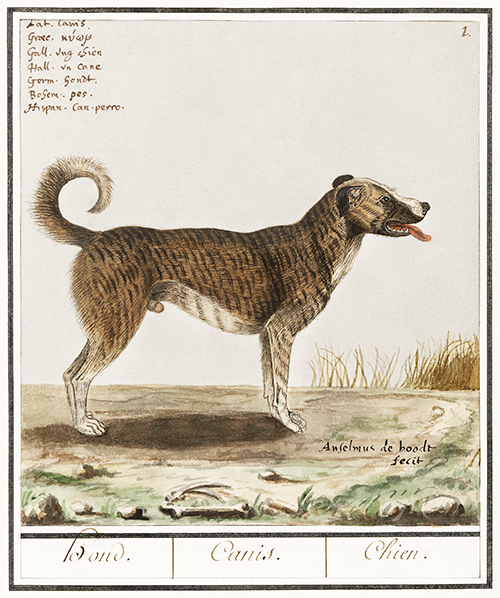 Lat. Canis.
Graec. κύωρ
Gall. vng chien
Itall. vn Cane
Germ. hondt.
Bohem. pes.
Hispan. Can. perro.
1.
Anselmus de boodt
fecit
Hond. Canis. Chien.